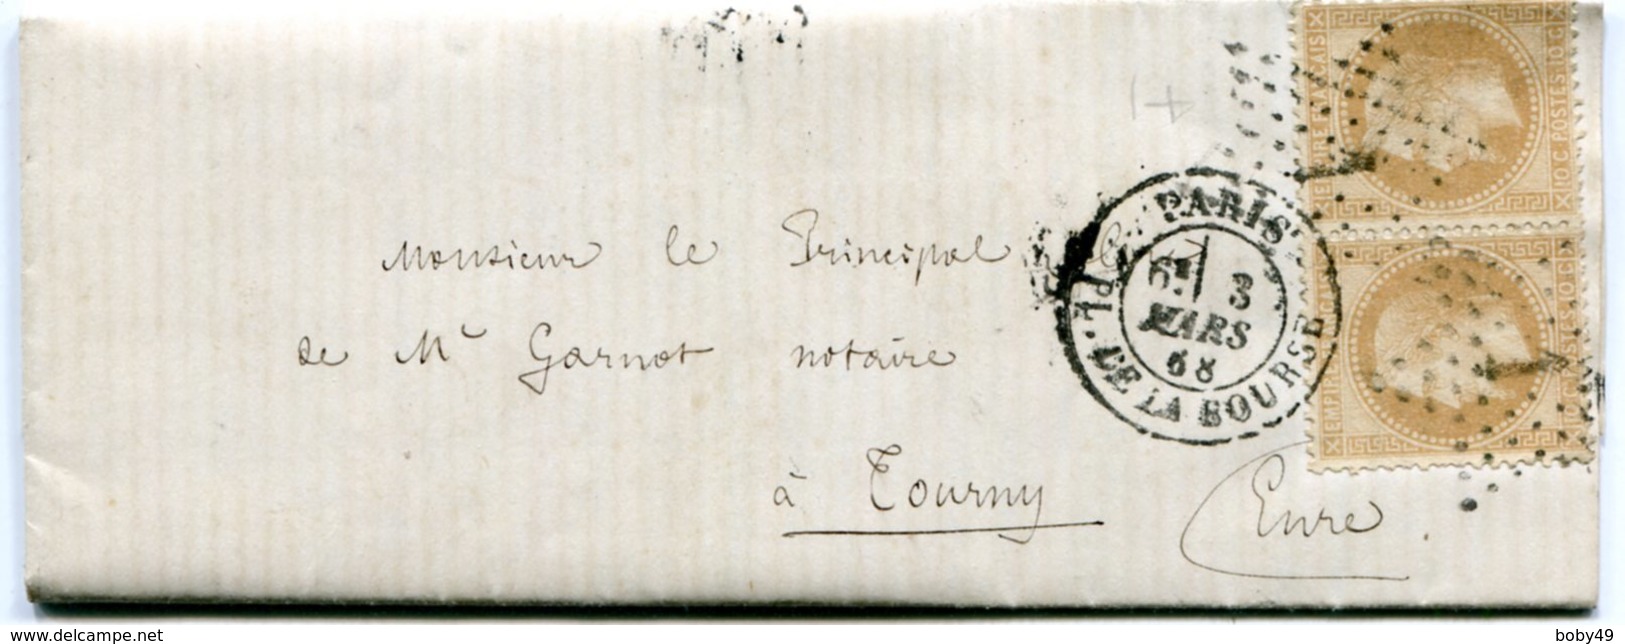 Monsieur le Principal clerc
de Mr Garnot notaire
à Tourny
Eure.
PARIS
Pl. DE LA BOURSE
6E 3
MARS
68
EMPIRE FRANCAIS
10 C. POSTES 10 C.
EMPIRE FRANCAIS
10 C. POSTES 10 C.
1
1
www.delcampe.net
boby49